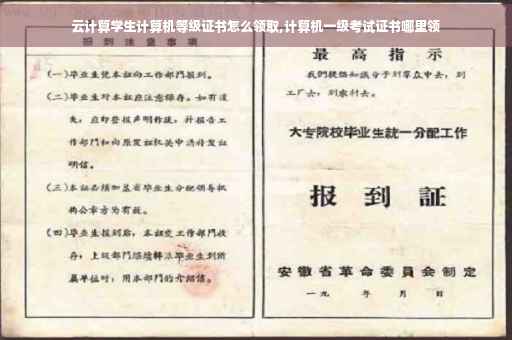 云计算学生计算机等级证书怎么领取,计算机一级考试证书哪里领
报到注意事项
(一)毕业生凭本证向工作部门报到。
(二)毕业生对本证应注意保存。如有遗
失，应即登报声明作废，并报告工
作部门和向原发证机关申请补发证
明信。
(三)本证必须加盖省毕业生分配领导机
构公章方为有效。
(四)毕业生报到后，本证交工作部门收
存；上级部门继续转派毕业生到所
属单位时，用本部门的介绍信。
最高指示
我们提倡知识分子到群众中去，到
工厂去，到农村去。
大专院校毕业生統一分配工作
报到証
安徽省革命委員会制定
一九 年 月 日